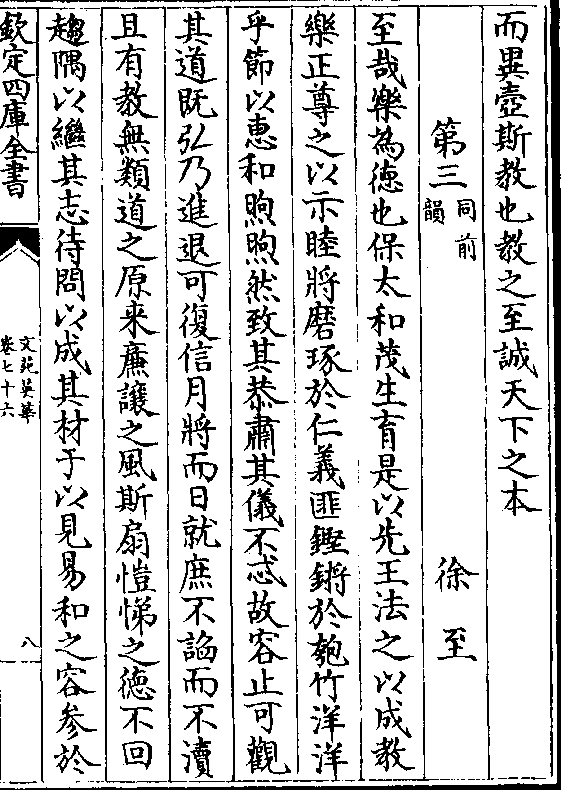 而異壺斯教也教之至誠天下之本
第三同前韻　徐至
至哉樂為德也保太和茂生育是以先王法之以成教
樂正尊之以示睦將磨琢於仁義匪鏗鏘於匏竹洋洋
乎節以惠和煦煦然致其恭肅其儀不忒故容止可觀
其道既弘乃進退可復信月將而日就庶不諂而不瀆
且有教無類道之原來廉讓之風斯扇愷悌之德不回
趨隅以繼其志待問以成其材于以見易和之容参於
欽定四庫全書
文苑英華
卷七十六
八